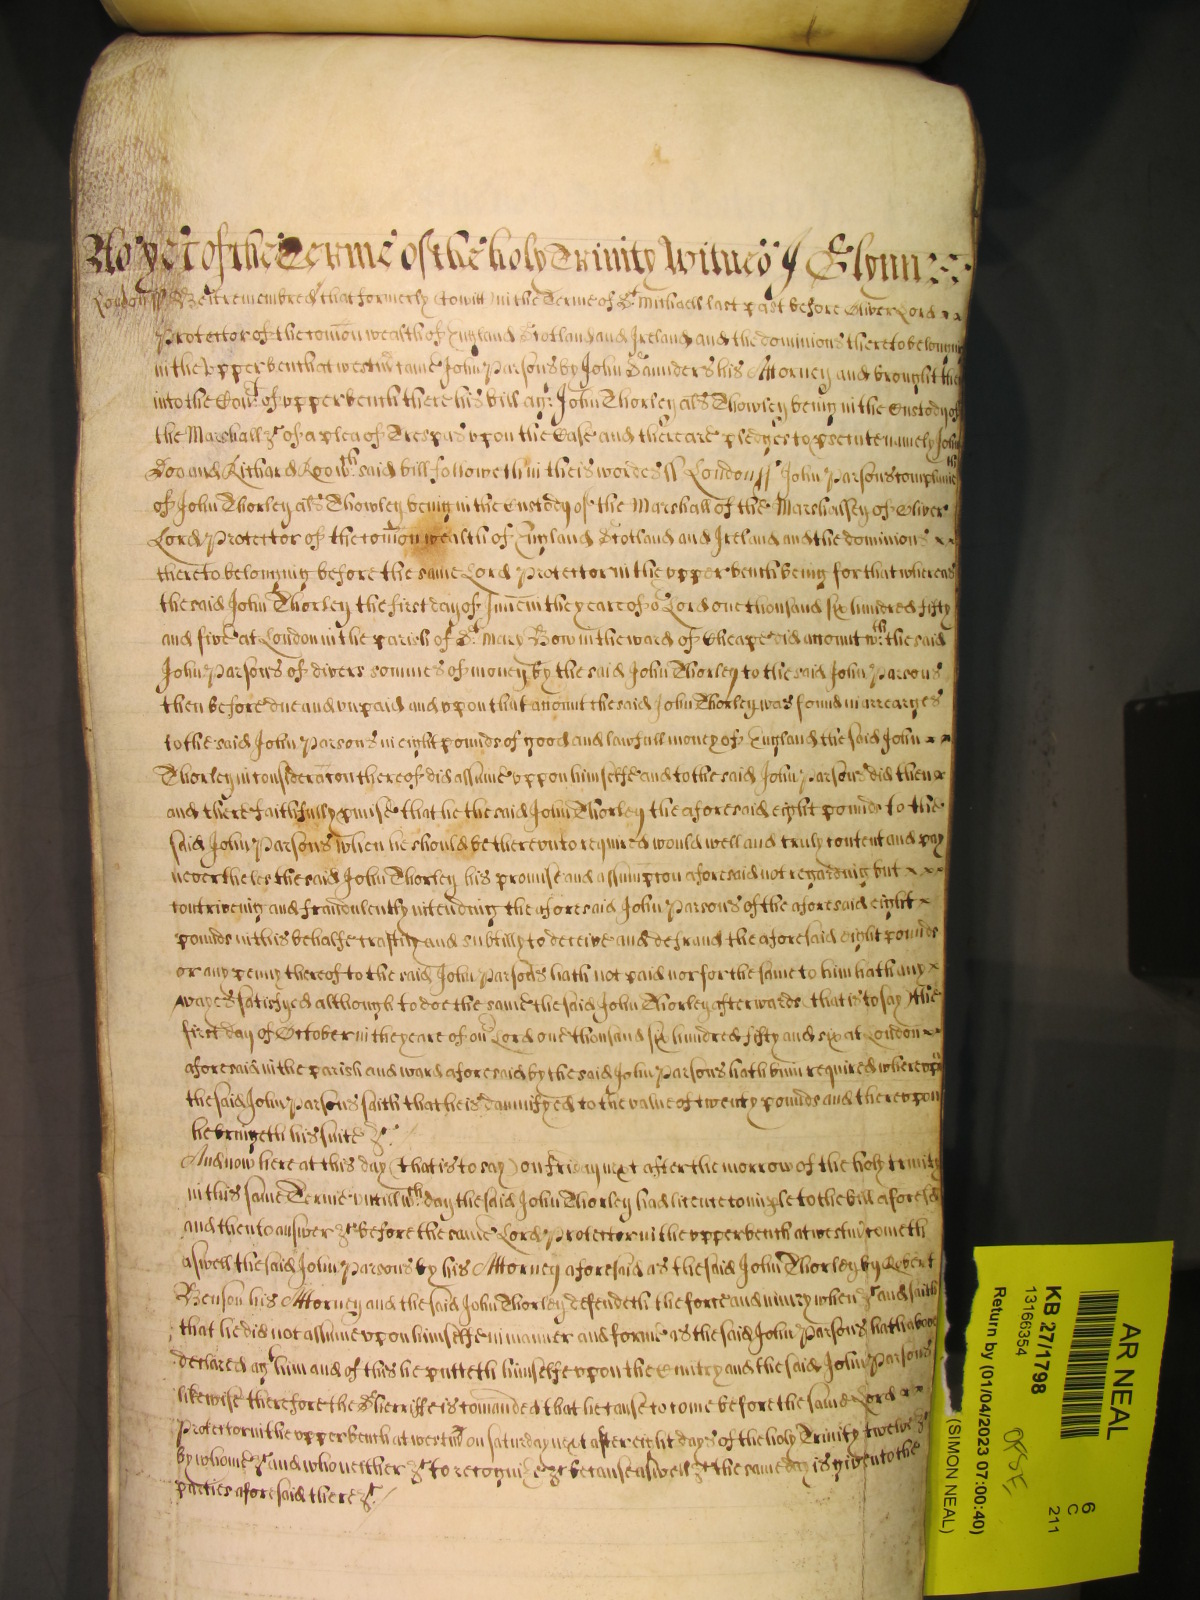 As yet of the Terme of the holy Trinity Witnes J Glynn
London ss Be it remembred that formerly (to witt) in the Terme of St Michaell last past before Oliver Lord
Protector of the comon wealth of England Scotland and Ireland and the dominions thereto belonging
in the upper bench at westmr came John Parsons by John Saunders his Attorney and brought then
into the Court of upper bench there his bill agt John Thorley als Thowley being in the Custody of
the Marshall &c of a plea of Trespas upon the Case and there are pledges to psecute namely John
Doo and Richard Roo wch said bill followeth in theis wordes ss London ss John Parsons complaineth
of John Thorley als Thowley being in the Custody of the Marshall of the Marshalsey of Oliver
Lord Protector of the comon wealth of England Scotland and Ireland and the dominions
thereto belonging before the same Lord Protector in the upper bench being for that whereas
the said John Thorley the first day of June in the yeare of or Lord one thousand six hundred fifty
and five at London in the parish of St Mary Bow in the ward of Cheape did accompt wth the said
John Parsons of divers sommes of money by the said John Thorley to the said John Parsons
then before due and unpaid and upon that accompt the said John Thorley was found in arreages
to the said John Parsons in eight pounds of good and lawfull money of England the said John
Thorley in consideracon thereof did assume uppon himselfe and to the said John Parsons did then
and there faithfully pmise that he the said John Thorley the aforesaid eight pounds to the
said John Parsons when he should be thereunto required would well and truly content and pay
nevertheles the said John Thorley his promise and assumpcon aforesaid not regarding but
contriveing and fraudulently intending the aforesaid John Parsons of the aforesaid eight
pounds in this behalfe craftily and subtilly to deceive and defraud the aforesaid eight pounds
or any penny thereof to the said John Parsons hath not paid nor for the same to him hath any
wayes satisfyed although to doe the same the said John Thorley afterwards (that is to say) the
first day of October in the yeare of our Lord one thousand six hundred fifty and six at London
aforesaid in the parish and ward aforesaid by the said John Parsons hath binn required whereupon
the said John Parsons saith that he is damnifyed to the value of twenty pounds and thereupon
he bringeth his suite &c
And now here at this day (that is to say) on friday next after the morrow of the holy trinity
in this same Terme untill wch day the said John Thorley had licence to imple to the bill aforesd
and then to answer &c before the same Lord Protector in the upper bench at westmr cometh
aswell the said John Parsons by his Attorney aforesaid as the said John Thorley by Robert
Benson his Attorney and the said John Thorley defendeth the force and iniury when &c and saith
that he did not assume upon himselfe in manner and forme as the said John Parsons hath above
declared agt him and of this he putteth himselfe upon the Cuntry and the said John Parsons
likewise therefore the Sherriffe is comanded that he cause to come before the same Lord
Protector in the upper bench at westmr on saturday next after eight days of the holy Trinity twelve &c
by whome &c and who neither &c to recognize &c because aswell &c the same day is given to the
parties aforesaid there &c
AR NEAL
KB 27/1798
13166354
Return by (01/04/2023 07:00:40)
(SIMON NEAL)
6
C
211